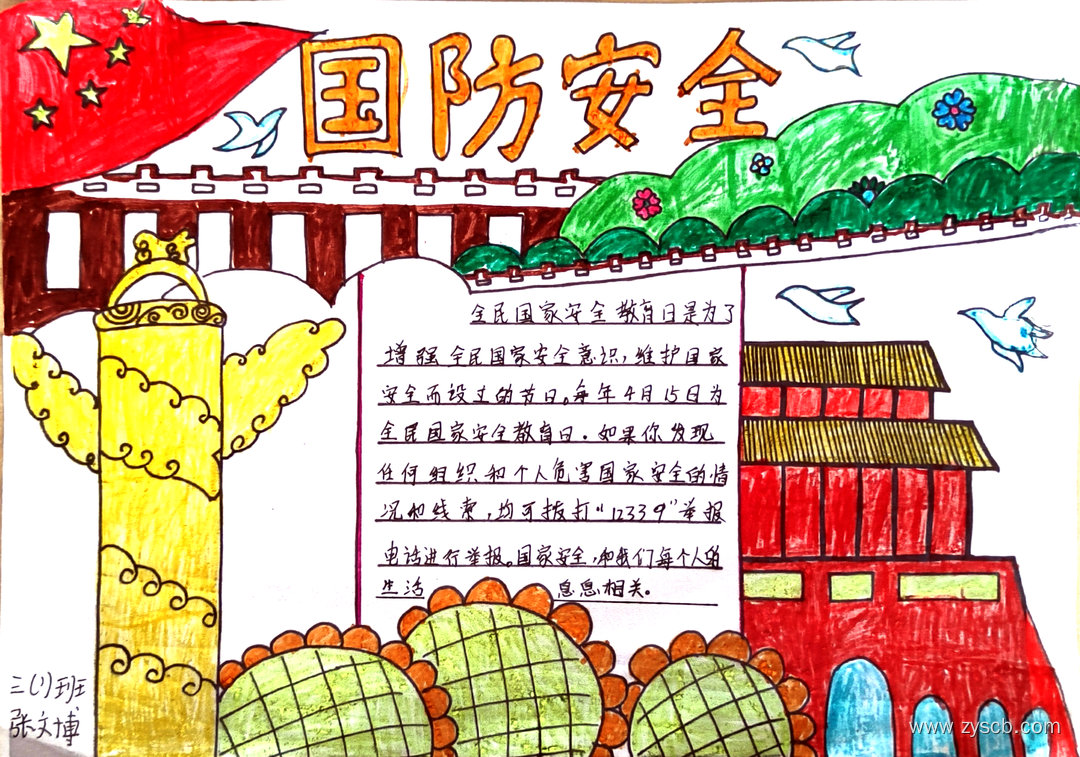 国防安全
全民国家安全教育日是为了
增强全民国家安全意识，维护国家
安全而设立的节日。每年4月15日为
全民国家安全教育日。如果你发现
任何组织和个人危害国家安全的情
况和线索，均可拔打“12339”举报
电话进行举报。国家安全，和我们每个人的
生活 息息相关。
三(1)班
张文博
www.zyscb.com